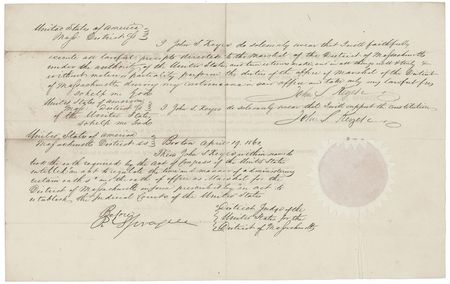 United States of America
Mass. District ss
I John S Keyes do solemnly swear that I will faithfully
execute all lawful precepts directed to the Marshal of the District of Massachusetts
under the authority of the United States, and true returns make, and in all things well & truly &
without malice or partiality perform the duties of the office of Marshal of the District
of Massachusetts during my continuance in said office and take only my lawful fees
So help me God.
John S. Keyes
United States of America
Mass District ss
I John S. Keyes do solemnly swear that I will support the Constitution
of the United States,
So help me God
John S Keyes
United States of America
Massachusetts District ss
Boston April 19. 1861
Then John S Keyes within named
took the oath required by the act of Congress of the United States
entitled an act to regulate the time and manner of administering
certain oaths & also the oath of office as Marshal for the
District of Massachusetts in form prescribed by an act to
establish the Judicial Courts of the United States
Before
P. Sprague
District Judge of the
United States for the
District of Massachusetts